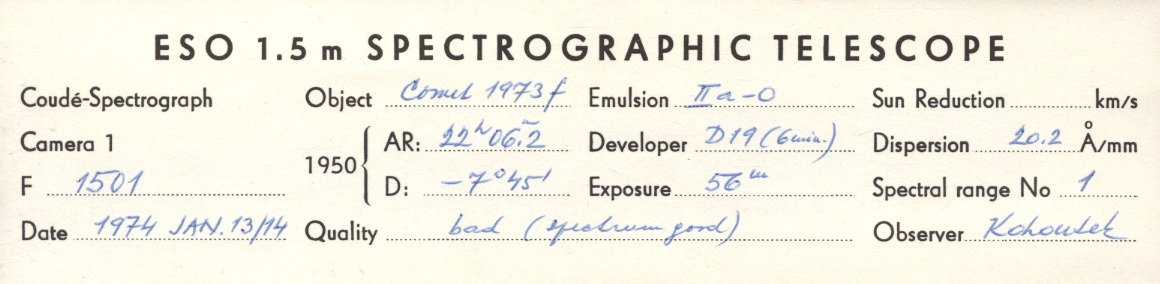 ESO 1.5 m SPECTROGRAPHIC TELESCOPE
Coudé-Spectrograph Object Comet 1973f Emulsion IIa-O Sun Reduction km/s
Camera 1 1950 { AR: 22h06m.2 Developer D19 (6min.) Dispersion 20.2 Å/mm
F 1501 D: -7°45' Exposure 56m Spectral range No 1
Date 1974 JAN. 13/14 Quality bad (spectrum good) Observer Kohoutek